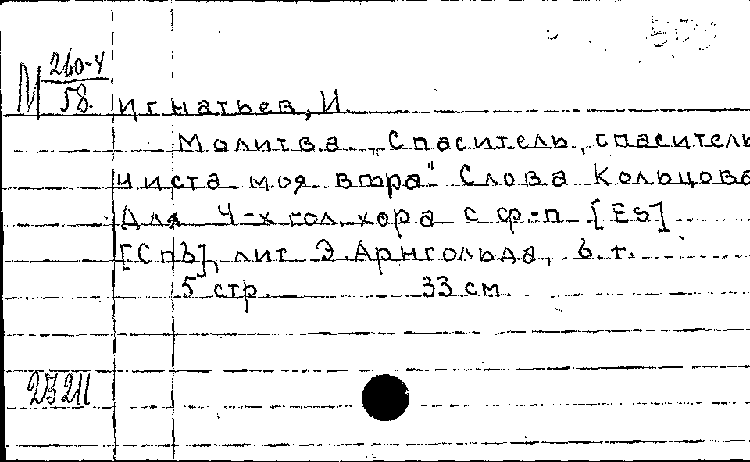 М 260-4
58.
Игнатьев, И
Молитва „Спаситель, спаситель
чиста моя вера" Слова Кольцова
Для 4-х гол. хора с ф-п [Es]
[СПб], лит Э. Арнгольда, б. г.
5 стр. 33 см
25211